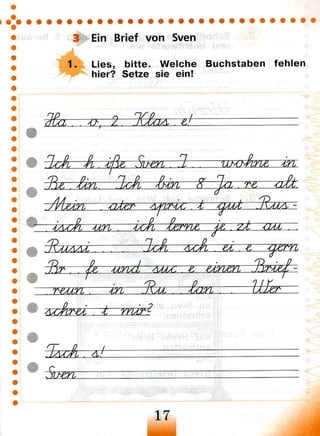 3 Ein Brief von Sven
1. Lies, bitte. Welche Buchstaben fehlen
hier? Setze sie ein!
Ha . . o, 2. Klas . e!
Ich h . iße Sven. I . . wohne in
Be . lin. Ich bin 8 Ja . re alt.
Mein . . ater spric . t gut . Rus-
. isch un . . ich lerne je . zt au . .
Russi . . . . Ich sch . ei . e gern
Br . . fe und suc . e einen Brief-
. reun . . in . Ru . . lan . . Wer
schrei . t mir?
Tsch . s!
Sven
17